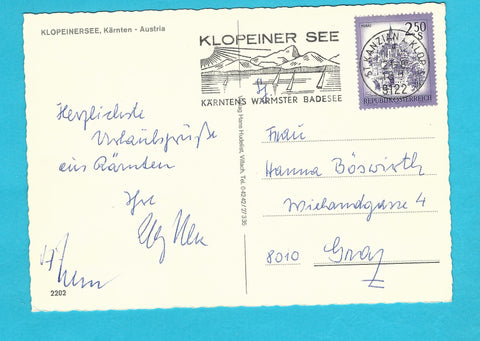 KLOPEINERSEE, Kärnten - Austria
KLOPEINER SEE
KÄRNTENS WÄRMSTER BADESEE
2.50
REPUBLIK ÖSTERREICH
ST. KANZIAN A. KLOP. SEE
9122
Verlag Hans Hudelist, Villach, Tel. 04242/27336
Herzlichste
Urlaubsgrüße
aus Kärnten
Ihr
Frau
Hanna Böswirth
Wielandgasse 4
8010 Graz
2202